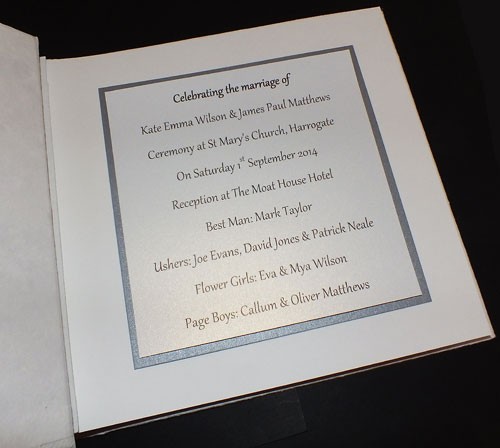 Celebrating the marriage of
Kate Emma Wilson & James Paul Matthews
Ceremony at St Mary's Church, Harrogate
On Saturday 1st September 2014
Reception at The Moat House Hotel
Best Man: Mark Taylor
Ushers: Joe Evans, David Jones & Patrick Neale
Flower Girls: Eva & Mya Wilson
Page Boys: Callum & Oliver Matthews